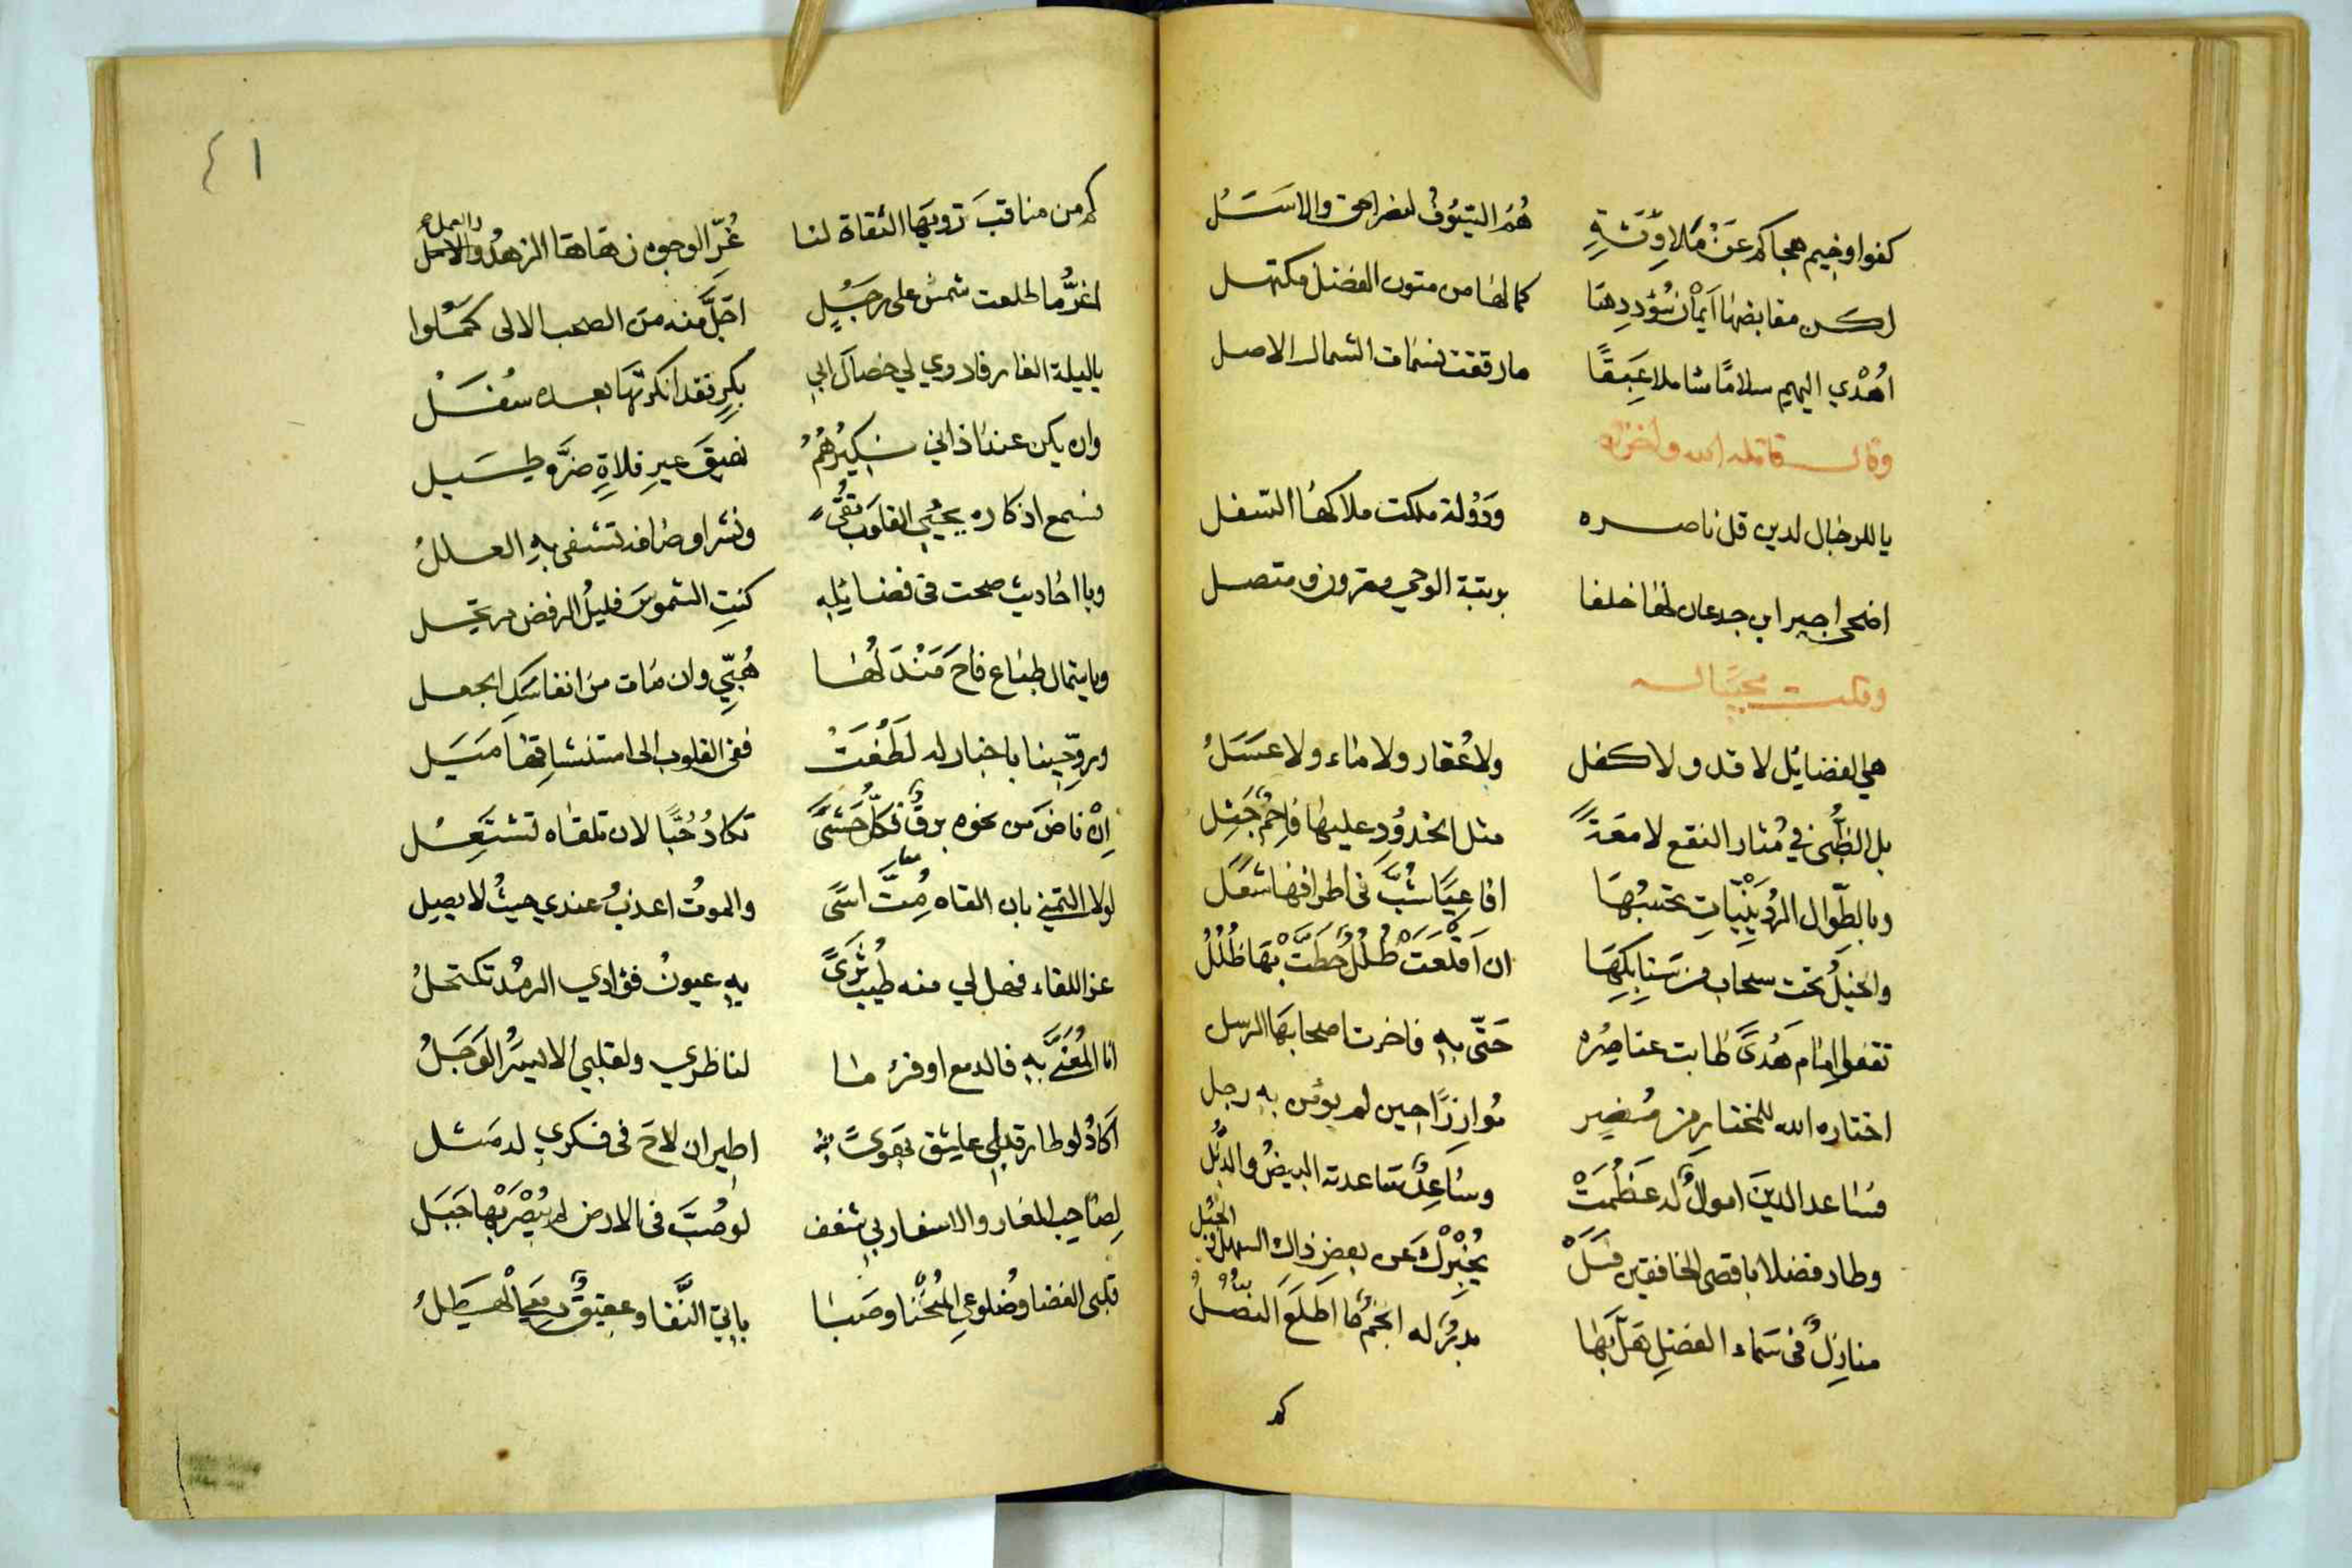 كفوا وخيم هجاكم عن ملا وثقة هم السيوف لنصر الحق والاسل
لكن مقابضها ايمان سؤددها كما لها من متون الفضل مكتهل
اهدي اليهم سلامًا شاملا عبقًا ما رققت نسمات الشمال الاصل
وقال قاتله الله واخزاه
يا للرجال لدين قل ناصره ودولة ملكت ملاكها السفل
اضحى اجير ابن جدعان لها خلفا برتبة الوحي مقرون ومتصل
وقلت مجيبا له
هي الفضايل لا قد ولا كفل ولا عقار ولا ماء ولا عسل
بل الظبى في مثار النقع لامعة مثل الخدود عليها فاحم جثل
وبالطوال الردينيات تحسبها افاعيا شب في اطرافها شعل
والخيل تحت سحاب من سنابكها ان اقلعت ظلل حطت بها ظلل
تقفوا امام هدى طابت عناصره حتى به فاخرت اصحابها الرسل
اختاره الله للمختار من مضر موازرًا حين لم يؤمن به رجل
فساعد الدين اموال له عظمت وساعد ساعدته البيض والذبل
وطار فضلا باقصى الخافقين فسل يخبرك عن بعض ذاك السهل والجبل
منازل في سماء الفضل حل بها بدر له انجم ما اطلع
كم
٤١
كم من مناقب ترويها الثقاة لنا غر الوجوه زهاها الزهد والامل
والعمل صح
اغر ما طلعت شمس على رجل اجل منه من الصحب الالى كملوا
يا ليلة الغار فاروي لي خصال ابي بكر فقد انكرتها بعده سفل
وان يكن عند اذاني نكيرهم نهيق عير فلاة ضره طسل
نسمع اذكاره يحيي القلوب تقى ونشر اوصافه تشفى به العلل
ويا احاديث صحت في فضايله كنت الشموس فليل الرفض مرتحل
ويا شمال طباع فاح مندلها هبي وان مات من انفاسك الجعل
وروحينا باخبار له لطفت ففي القلوب الى استنشاقها ميل
ان فاض من نحوه برق فكل حشى تكاد حبًا لان تلقاه تشتعل
لولا التمني بان القاه مت اسى والموت اعذب عندي حيث لا يصل
عز اللقاء فهل لي منه طيب ثرى به عيون فؤادي الرمد تكتحل
انا المعنى به فالدمع اوفر ما لناظري ولقلبي الايسر الوجل
اكاد لو طار قبلي عاشق بهوى اطير ان لاح في فكري له مثل
لصاحب الغار والاسفار بي شغف لو صب في الارض لم يبصر بها جبل
قلبي الغضا وضلوعي المنحنا وصبا بابي النقا وعقيق دمعي الهطل